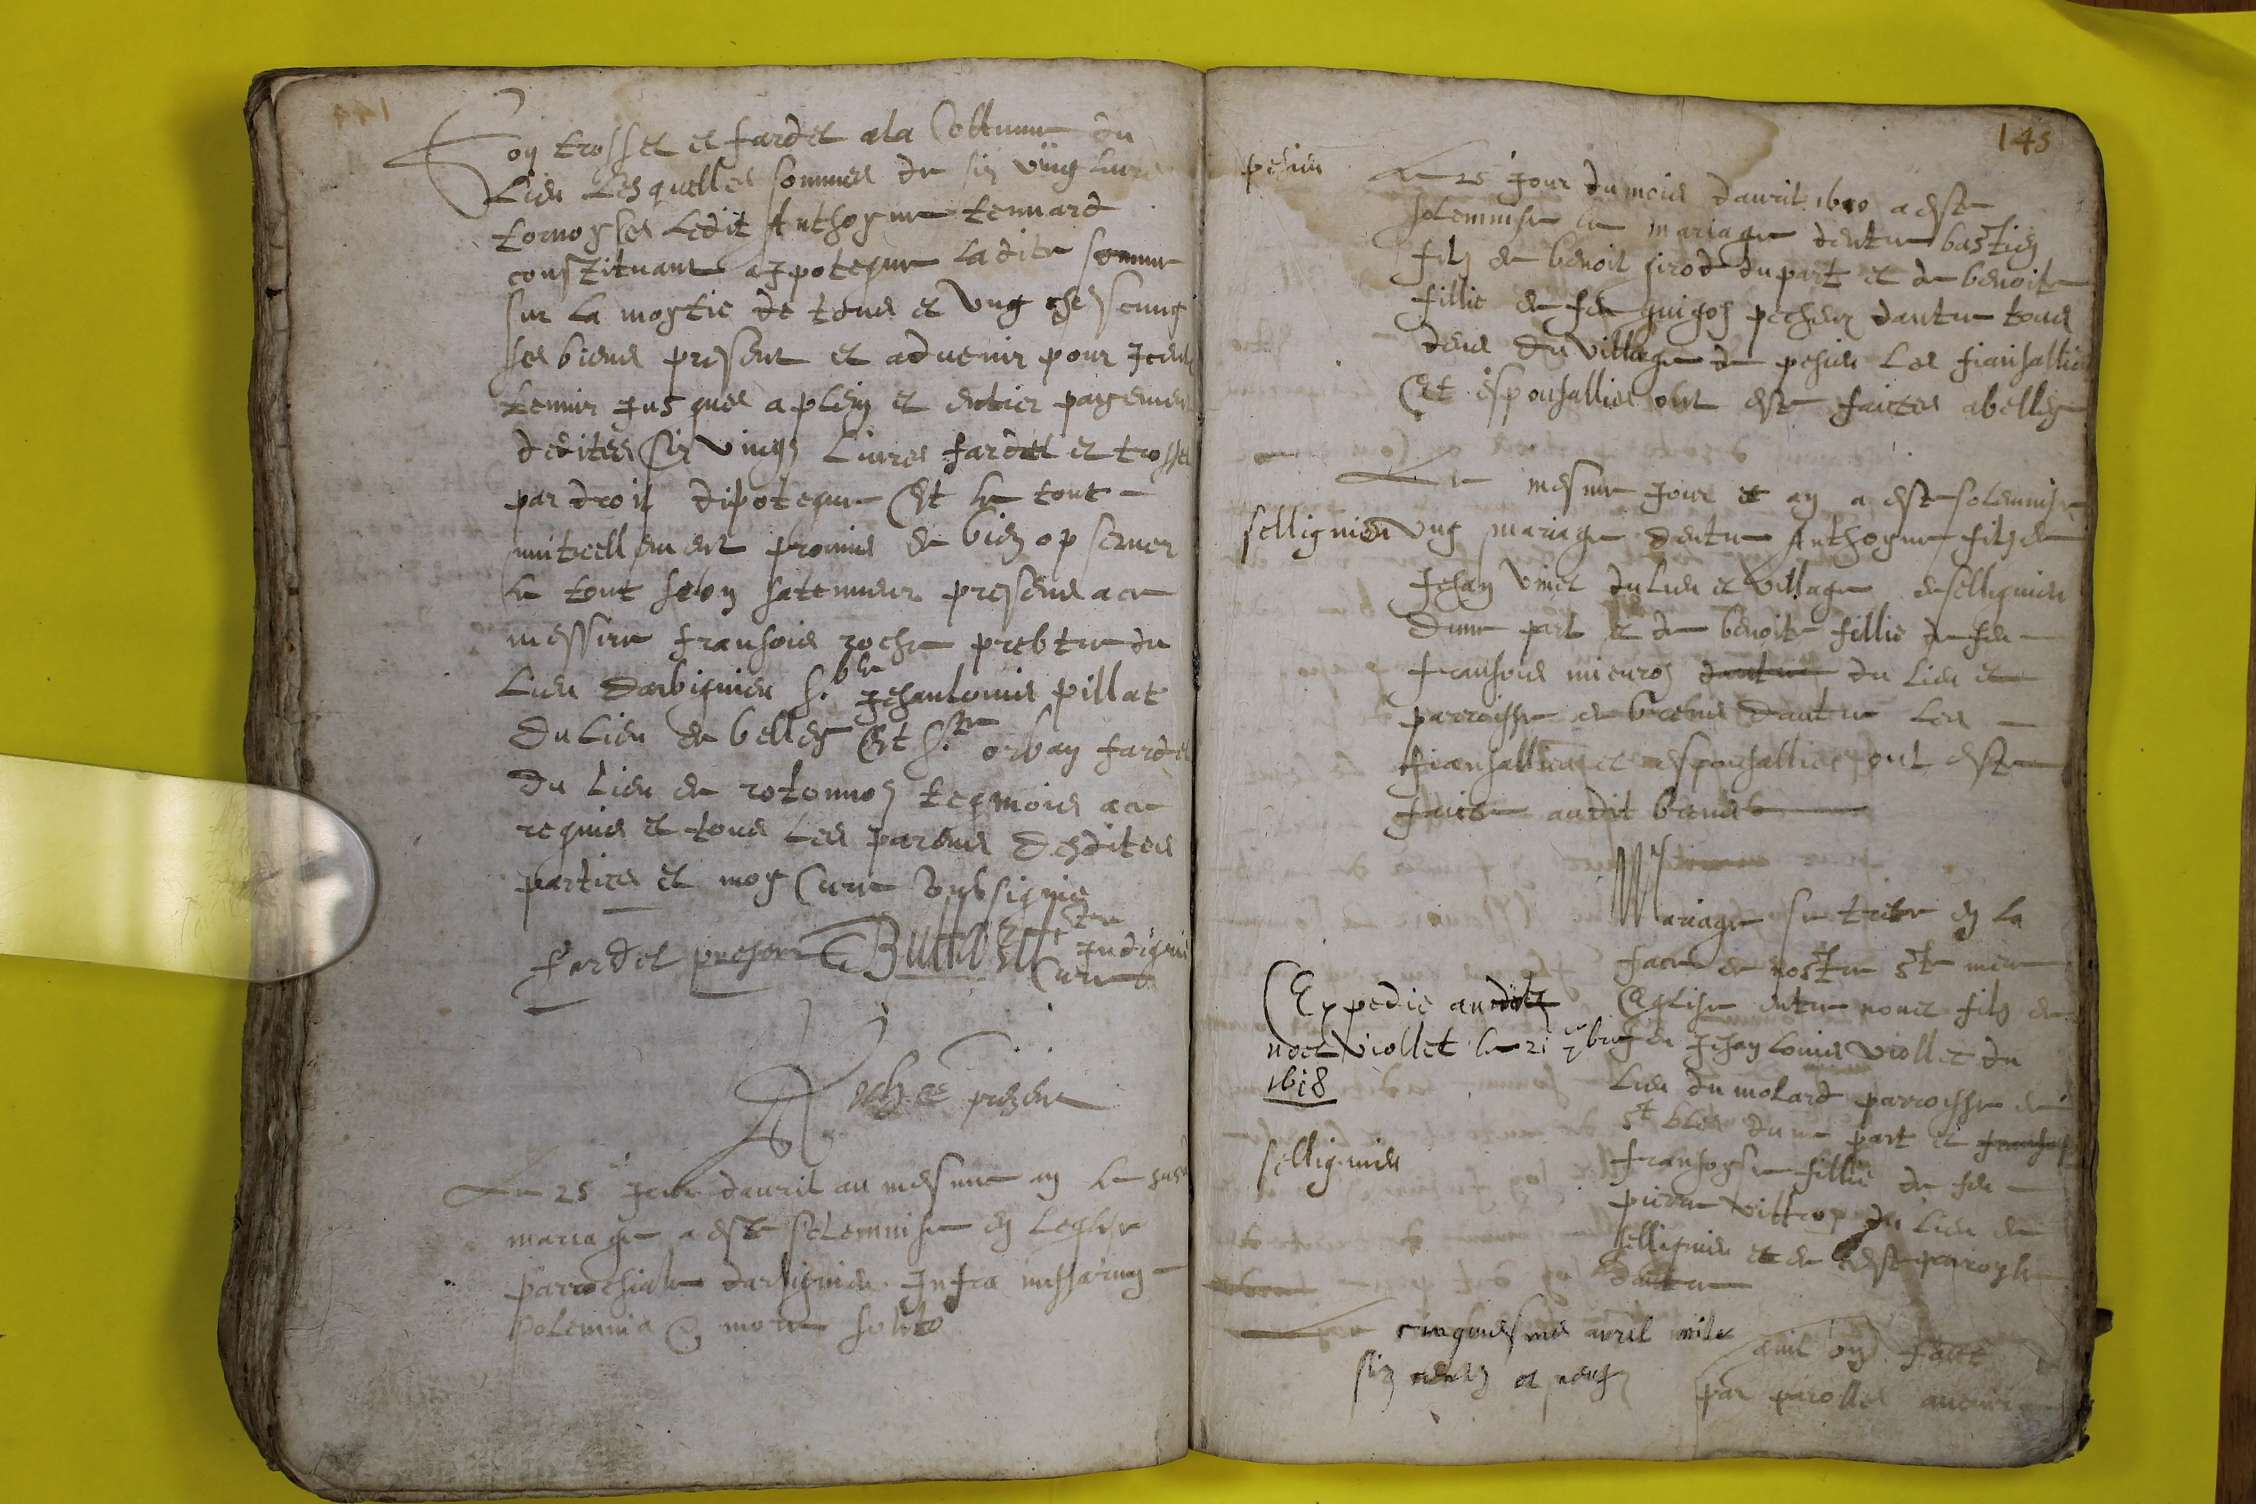 on trossel et fardel a la Costume du
Lieu Lesquelles sommes de six vingt livres
tornoyses Ledit Anthoyne tennard
constituant aypoteque ladite somme
sur la moytie de tous et ung chescung
ses biens present et advenir pour Iceulx
tenir Jusques a plein et entier payement
desdites six vingz Livres fardel et trossel
par droit dipoteque Et le tout
mutuellement promis de bien opserver
le tout selon sa tenneur presens a ce
messire fransois roche prebtre du
Lieu darbignieu hble Jehan Louis pillat
du Lieu de belley Et hte orban fardel
du lieu de rotonnoz tesmoins a ce
requis et tous Les parens desdites
parties et moy Cure soubsigne
fardel present Indigne
Cure
Roche present
Le 25 Jour davril au mesme an Le susd
mariage a este solemnise en Leglise
parrochiale darbignieu Infra missarum
solemnia more solito
145
pesieu
Le 25 Jour du mois davril 1610 a este
solemnise le mariage dentre bastien
filz de benoit girod du part et de benoite
fillie de feu guigoz pecheur dautre tous
deux du village de pesieu Les fiansallies
Et esponsallies ont este faictes a belley
Le mesme Jour et an a este solemnise
sellignieu
ung mariage dentre Anthoyne filz de
Jehan vinet du Lieu et village de sellignieu
dune part et de benoite fillie de feu
fransois mieuroz dautre du Lieu et
parroisse de brens dautre Les
fiansallies et esponsallies ont este
faictes audit brens
Mariage se traicte en la
face de nostre ste mere
Eglise entre nouel filz de
feu Jehan Louis viollet du
Lieu du molard parroisse de
St bloy dune part et fransoy
fransoyse fillie de feu
pierre vittoz du Lieu de
sellignieu et de ceste paroysse
dautre
Expedie audit
noel viollet le 21 7bre
1618
sellignieu
cinquiesme avril mile
six centz et neufz
par parolles avenir